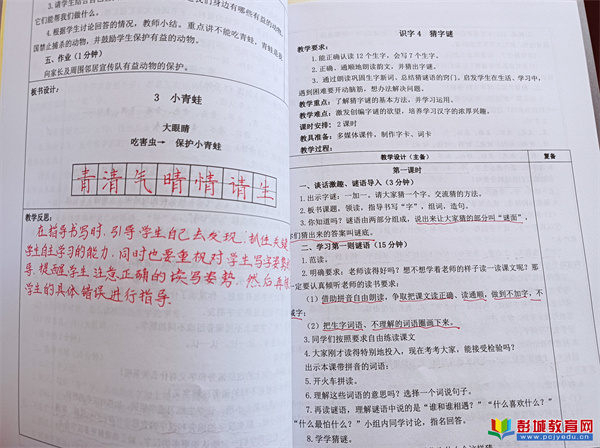 3.请学生结合自己
我们身边有哪些有益的动物,
它们能帮我们做什么。
4.根据学生讨论回答的情况,教师小结。重点讲不能吃青蛙,青蛙是我
国禁止捕杀的动物,并鼓励学生保护有益的动物。
五、作业(1 分钟)
向家长及周围邻居宣传队有益动物的保护。
板书设计:
3 小青蛙
大眼睛
吃害虫→ 保护小青蛙
青 清 气 晴 情 请 生
教学反思:
在指导书写时,引导学生自己去发现,抓住关键
学生自主学习的能力,同时也要重视对学生写字姿势
导,提醒学生注意正确的读写姿势,然后再
学生的具体错误进行指导。
识字 4 猜字谜
教学要求:
1.能正确认读 12 个生字,会写 7 个生字。
2.正确、通顺地朗读韵文,并猜出字谜。
3.通过朗读巩固生字新词,总结猜谜语的窍门,启发学生在生活、学习中,
遇到困难要开动脑筋,想办法解决问题。
教学重点:了解猜字谜的基本方法,并学习运用。
教学难点:激发创编字谜的欲望,培养学习汉字的浓厚兴趣。
课时安排:2 课时
教具准备:多媒体课件,制作字卡、词卡
教学过程:
教学设计(主备) 复备
第一课时
一、谈话激趣、谜语导入(3 分钟)
1.出示字谜:一加一。请大家猜一个字,交流猜的方法。
2.板书课题,领读,指导书写“字”,组词,造句。
3.你知道吗?谜语由两部分组成,说出来让大家猜的部分叫“谜面”,
们猜出来的答案叫谜底。
二、学习第一则谜语(15 分钟)
1.范读。
2.明确要求:老师读得好吗?想不想学着老师的样子读一读课文呢?那
定要认真倾听老师的读书要求:
(1)借助拼音自由朗读,争取把课文读正确、读通顺,做到不加字,不
减字;
(2)把生字词语,不理解的词语圈画下来。
3.同学们按照要求自由练读课文
4.大家刚才读得特别地投入,现在考考大家,能接受检验吗?
出示本课带拼音的词语:
5.开火车拼读。
6.理解这些词语的意思吗?选择一个词说句子。
7.再读谜语,理解谜语中说的是“谁和谁相遇?”“什么喜欢什么?”
“什么最怕什么?”小组内同学讨论,指名回答。
8.学学猜谜。
彭城教育网
www.pcjyedu.cn